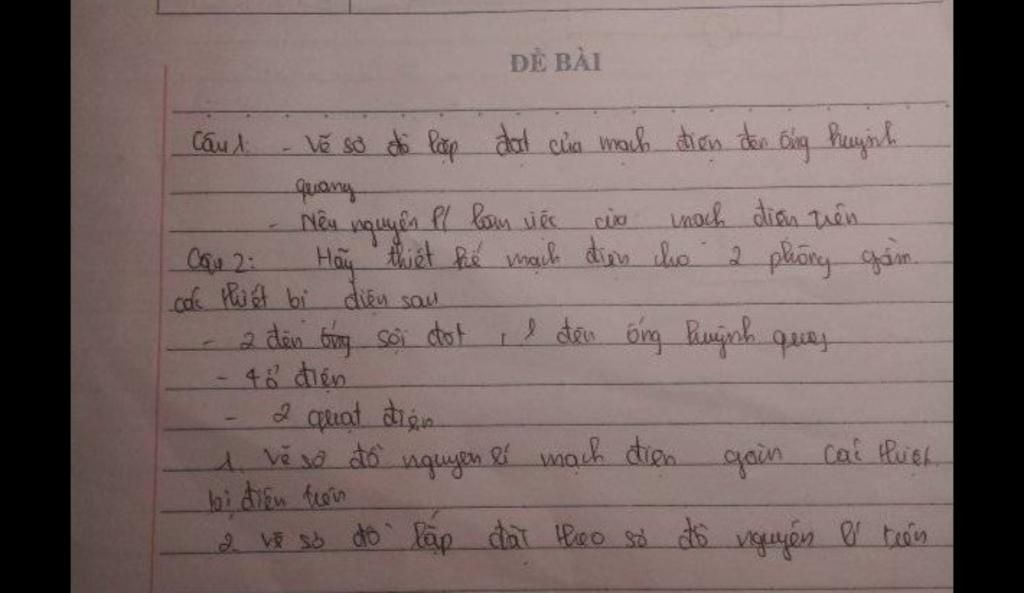 ĐỀ BÀI
Câu 1: - Vẽ sơ đồ lắp đặt của mạch điện đèn ống huỳnh
quang
- Nêu nguyên lí làm việc của mạch điện trên
Câu 2: Hãy thiết kế mạch điện cho 2 phòng gồm
các thiết bị điện sau
- 2 đèn ống sợi đốt, đèn ống huỳnh quang
- 4 ổ điện
- 2 quạt điện
1. Vẽ sơ đồ nguyên lí mạch điện gồm các thiết
bị điện trên
2 vẽ sơ đồ lắp đặt theo sơ đồ nguyên lí trên